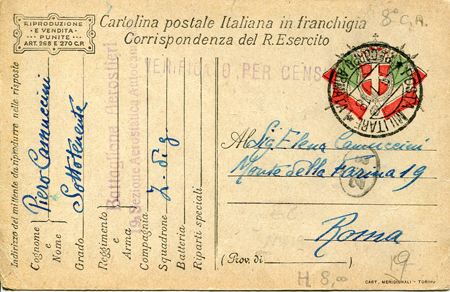 RIPRODUZIONE
E VENDITA
PUNITE
ART. 285 E 270 C.P.
Cartolina postale Italiana in franchigia
Corrispondenza del R. Esercito
8° C.A.
VERIFICATO PER CENS
POSTA MILITARE
Indirizzo del mittente da riprodurre nelle risposte
Cognome Piero Camuccini
e
Nome
Grado Sottotenente
Reggimento
e
Arma
Battaglione Aerostieri
Sezione Aerostatica Autocam
Compagnia
Squadrone
Batteria
Riparti speciali
Al Sig. Elena Camuccini
Monte della Farina 19
Roma
(Prov. di
19
H 8,00
CART. MERIDIONALI - TORINO